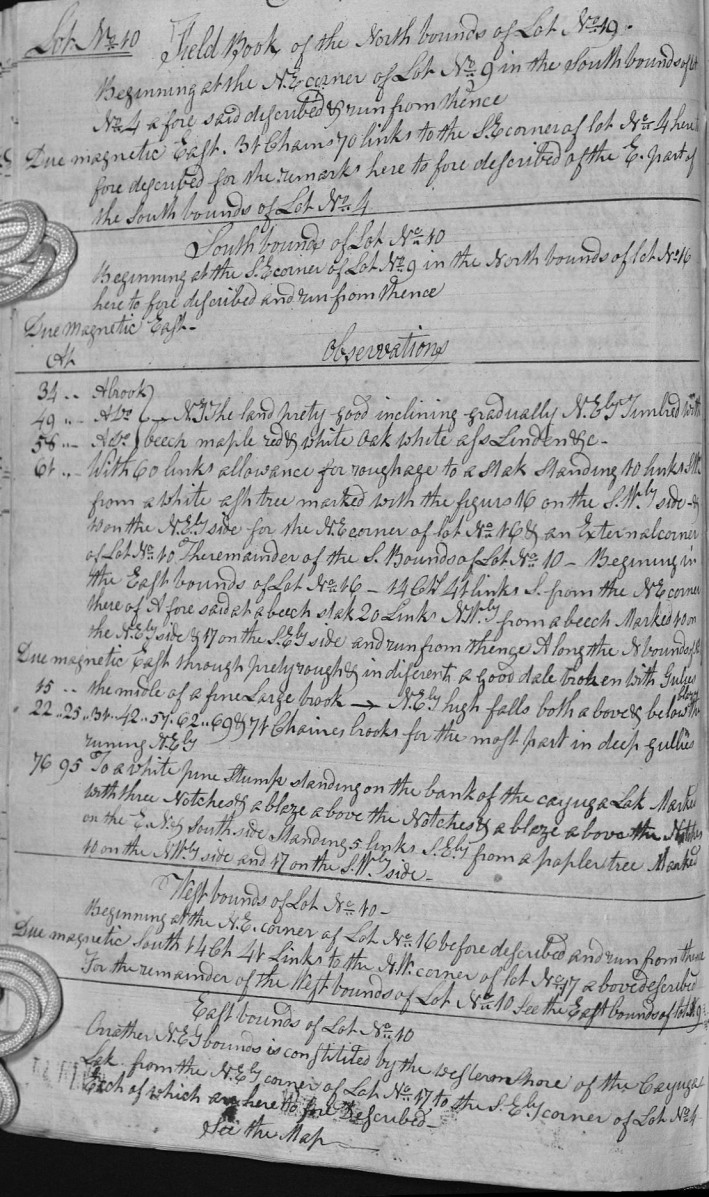 Lot No 10 Field Book of the North bounds of Lot No 19.
Beginning at the N.E corner of Lot No 9 in the South bounds of Lot
No 4 a fore said described & run from thence
Due magnetic East. 31 Chains 70 links to the S.E corner of lot No 4 here to
fore described for the remarks here to fore described of the E. part of
the South bounds of Lot No 4
South bounds of Lot No 10
Beginning at the S.E corner of Lot No 9 in the North bounds of lot No 16
here to fore described and run from thence
Due Magnetic East-
At Observations
34 .. A brook
49 .. A Do N.E. The land prety good inclining gradually N.Ely Timbred with
56 .. A Do beech maple red & white Oak white ash Linden &c-
61 .. With 60 links allowance for roughage to a Stak Standing 10 links S.W.
from a white ash tree marked with the figurs 16 on the S.Wly side &
10 on the N.Ely side for the N.E corner of lot No 16 & an External corner
of Lot No 10 The remainder of the S. Bounds of Lot No 10 - Begining in
the East bounds of Lot No 16 - 14 Ch 41 links S. from the N.E corner
there of A fore said at a beech stak 20 Links N.Wly from a beech Marked 10 on
the N.Ely side & 17 on the S.Ely side and run from thence Along the N bounds of
Due magnetic East through prety rough & in diferent a good dale broken with Gulies
15 .. the midle of a fine Large brook → N.Ely high falls both above & below the
22 .. 25 .. 31 .. 42 .. 57 .. 62 .. 69 & 71 Chaines brooks for the most part in deep gullies
runing N.Ely
76 95 To a white pine Stump standing on the bank of the cayuga Lak Marked
with three Notches & a blaze above the Notches & a blaze above the Notches
on the E. N. & South side Standing 5 links S.Ely from a papler tree Marked
10 on the N.Wly side and 17 on the S.Wly side-
West bounds of Lot No 10-
Beginning at the N.E. corner of Lot No 16 before described and run from thence
Due magnetic South 14 Ch 41 Links to the N.W. corner of lot No 17 above described
For the remainder of the West bounds of Lot No 10 See the East bounds of lot No 9
East bounds of Lot No 10
On other N.Ely bounds is constituted by the western shore of the Cayuga
Lak from the N.Ely corner of Lot No 17 to the S.Ely corner of Lot No 4
Each of which are here to fore described-
See the Map